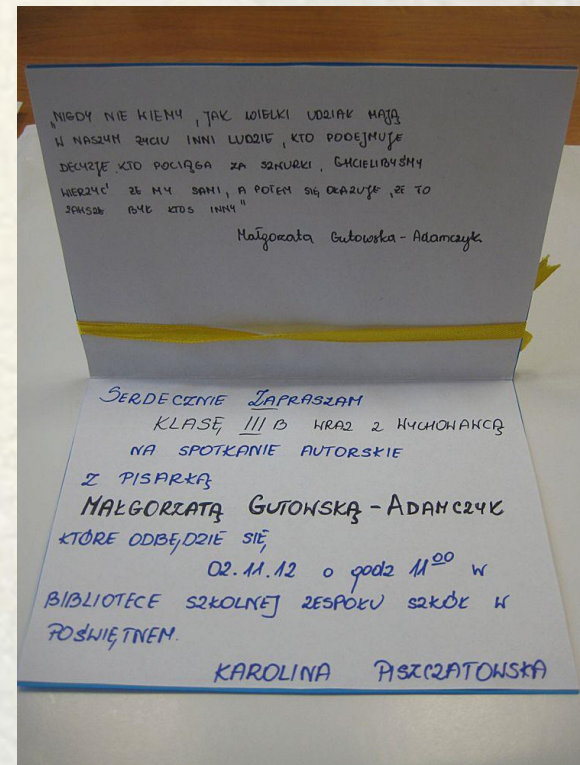 „NIGDY NIE WIEMY, JAK WIELKI UDZIAŁ MAJĄ
W NASZYM ŻYCIU INNI LUDZIE, KTO PODEJMUJE
DECYZJE, KTO POCIĄGA ZA SZNURKI. CHCIELIBYŚMY
WIERZYĆ ŻE MY SAMI, A POTEM SIĘ OKAZUJE, ŻE TO
ZAWSZE BYŁ KTOŚ INNY"
Małgorzata Gutowska-Adamczyk
SERDECZNIE ZAPRASZAM
KLASĘ III B WRAZ Z WYCHOWAWCĄ
NA SPOTKANIE AUTORSKIE
Z PISARKĄ
MAŁGORZATĄ GUTOWSKĄ-ADAMCZYK
KTÓRE ODBĘDZIE SIĘ
02.11.12 o godz 11⁰⁰ W
BIBLIOTECE SZKOLNEJ ZESPOŁU SZKÓŁ W
POŚWIĘTNEM.
KAROLINA PISZCZATOWSKA